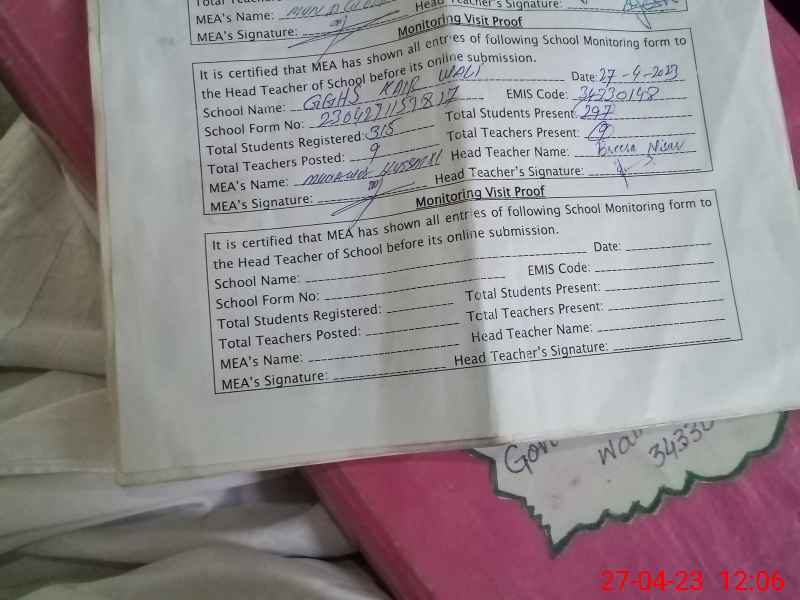 MEA's Name:
Head Teacher's Signature:
MEA's Signature:
Monitoring Visit Proof
It is certified that MEA has shown all entries of following School Monitoring form to
the Head Teacher of School before its online submission.
School Name: GGHS KAIR WALI Date: 27-4-2023
School Form No: 2304271157817 EMIS Code: 34230148
Total Students Registered: 315 Total Students Present: 297
Total Teachers Posted: 9 Total Teachers Present: 9
MEA's Name: Head Teacher Name:
MEA's Signature: Head Teacher's Signature:
Monitoring Visit Proof
It is certified that MEA has shown all entries of following School Monitoring form to
the Head Teacher of School before its online submission.
School Name: Date:
School Form No: EMIS Code:
Total Students Registered: Total Students Present:
Total Teachers Posted: Total Teachers Present:
MEA's Name: Head Teacher Name:
MEA's Signature: Head Teacher's Signature:
27-04-23 12:06